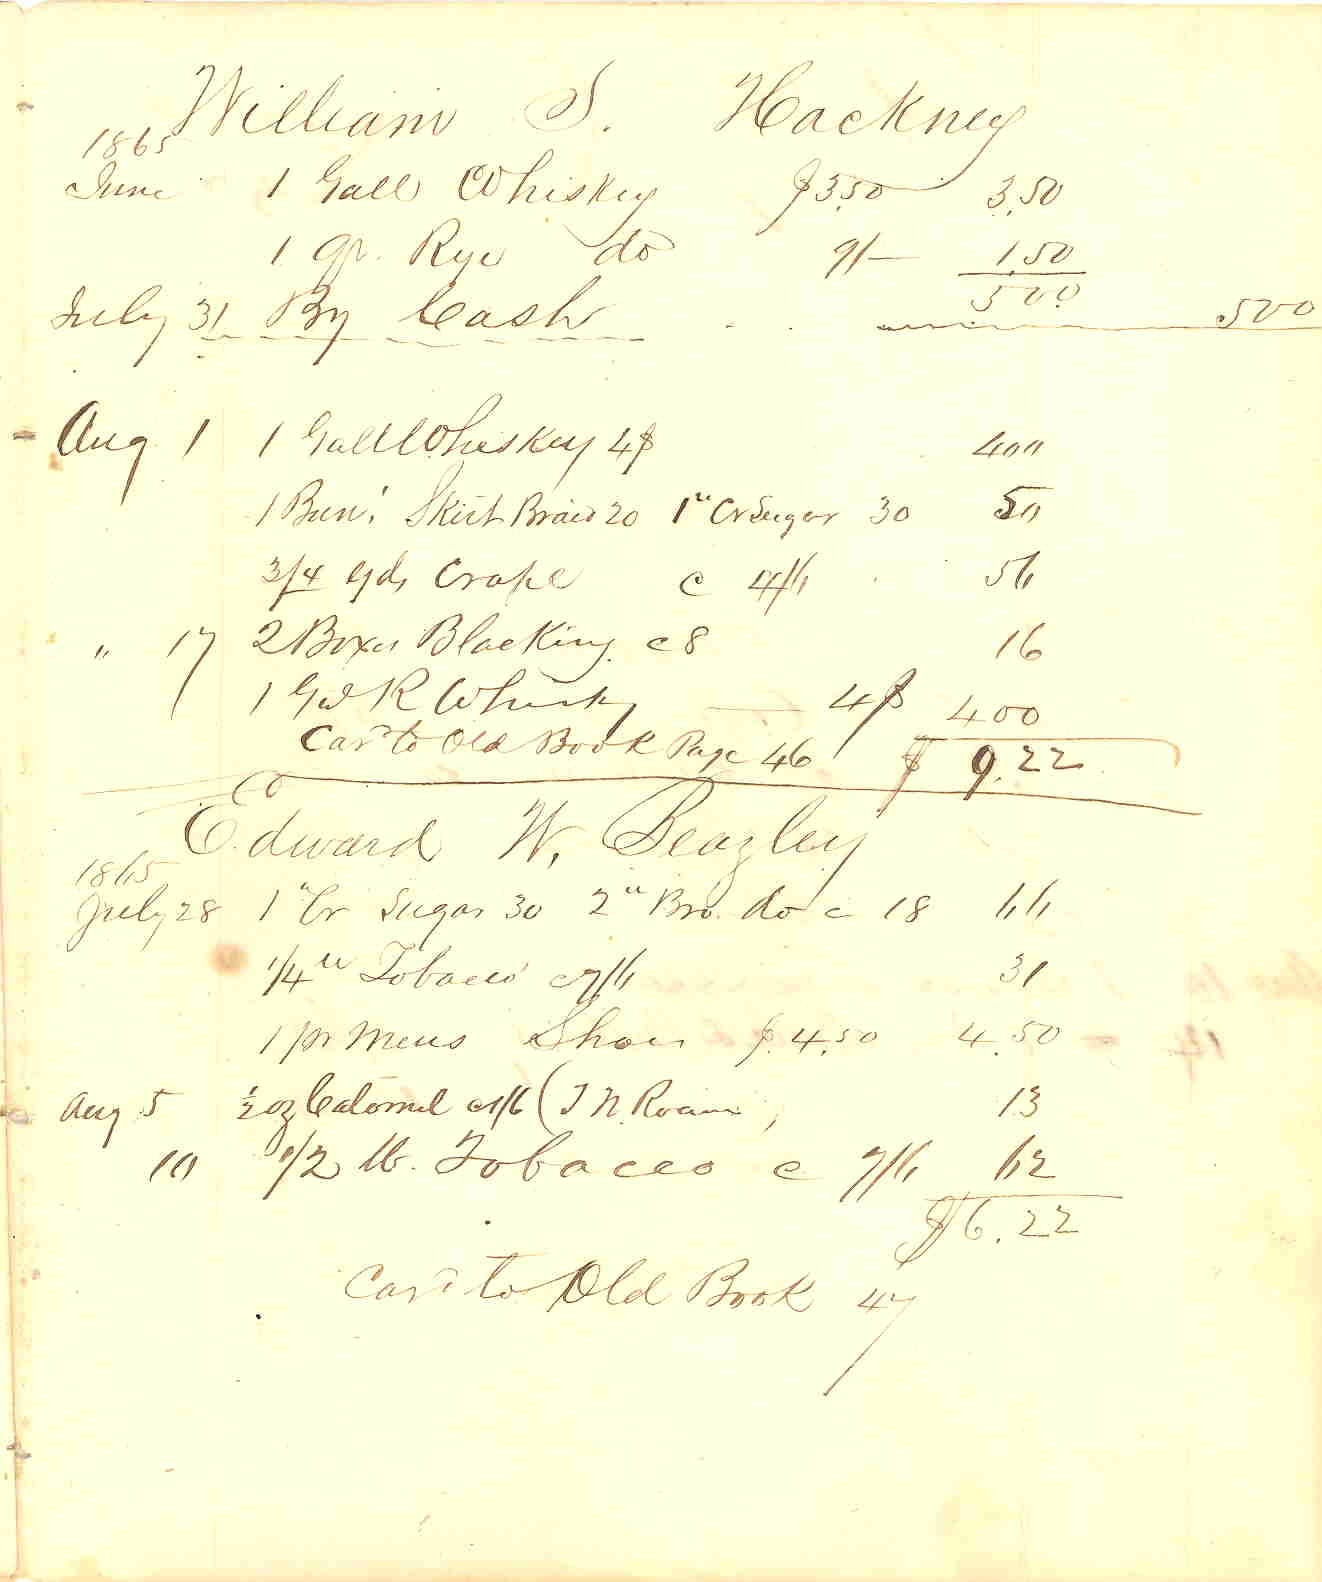 William S. Hackney
1865
June 1 Gall Whiskey $3.50 3.50
1 qr. Rye do 9/- 1.50
500
July 31 By Cash 500
Aug 1 1 Gall Whiskey 4$ 400
1 Bun. Skirt Braid 20 1" Cr Sugar 30 50
3/4 yds Crape c 4/6 56
" 17 2 Boxes Blacking c 8 16
1 Gal R Whisky 4$ 400
Card to Old Book Page 46 $ 9.22
Edward W. Beazley
1865
July 28 1" Cr Sugar 30 2" Bro. do c 18 66
1/4" Tobacco c 7/6 31
1 pr Mens Shoes $4.50 4.50
Aug 5 1/2 oz Calomel c 1/6 (T N 13
10 1/2 lb. Tobacco c 7/6 62
$6.22
Card to Old Book 47